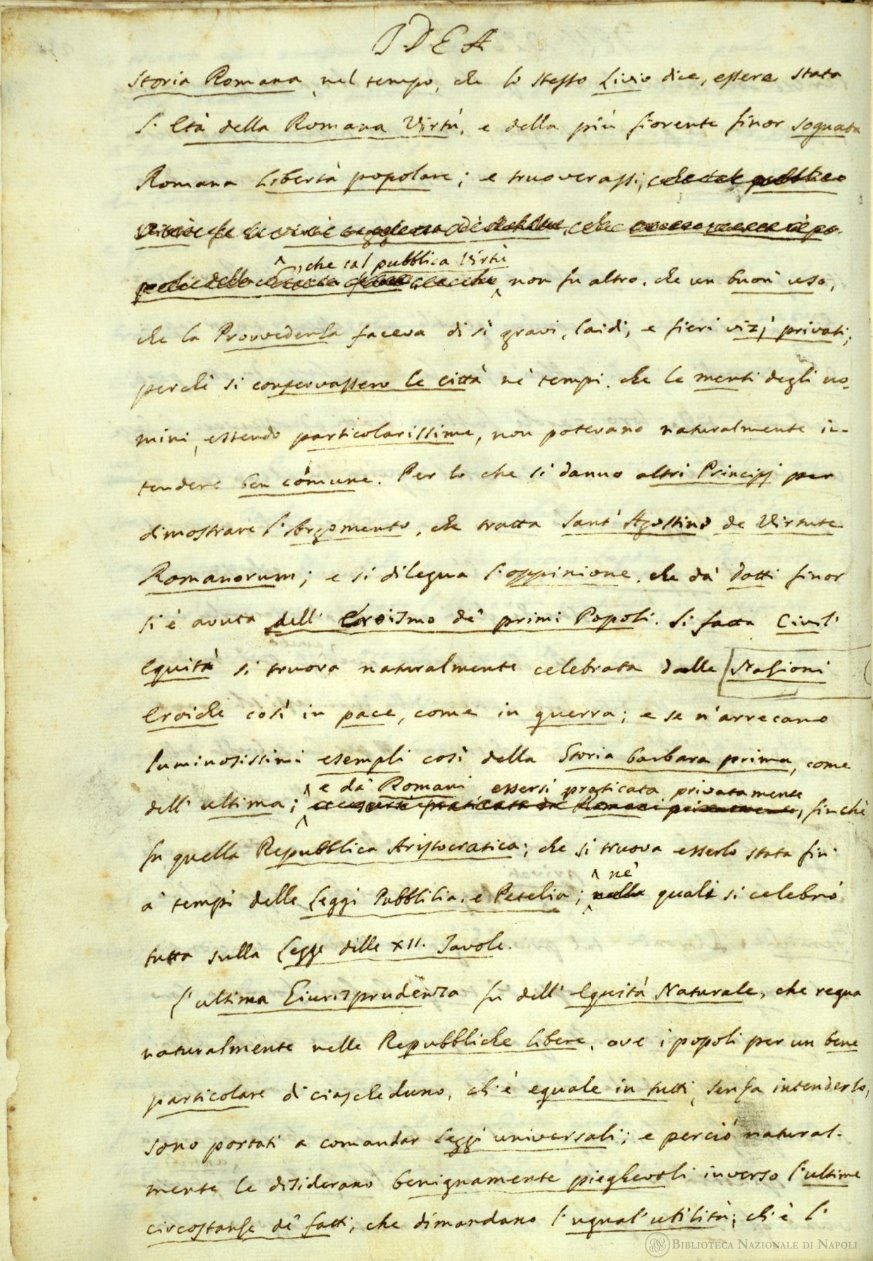 IDEA
Storia Romana, nel tempo, che lo stesso Livio dice, essere stata
l'Età della Romana Virtù, e della più fiorente finor sognata
Romana Libertà popolare; e truoverassi,
, che tal pubblica Virtù
non fu altro, che un buon uso,
che la Provvedenza faceva di sì gravi, laidi, e fieri vizj privati;
perchè si conservassero le città ne' tempi, che le menti degli uo-
mini, essendo particolarissime, non potevano naturalmente in-
tendere ben comune. Per lo che si danno altri Principj per
dimostrare l'Argomento, che tratta Sant'Agostino de Virtute
Romanorum; e si dilegua l'oppinione, che da' Dotti finor
si è avuta dell'Eroismo de' primi Popoli. Sì fatta Civil'
Equità si truova naturalmente celebrata dalle Nazioni
Eroiche così in pace, come in guerra; e se n'arrecano
luminosissimi esempli così della Storia barbara prima, come
e da' Romani essersi praticata privatamente
dell'ultima; , finchè
fu quella Repubblica Aristocratica; che si truova esserlo stata fin'
a' tempi delle Leggi Pubblilia, e Petelia; ne' quali si celebrò
tutta sulla Legge delle XII. Tavole.
L'ultima Giurisprudenza fu dell'Equità Naturale, che regna
naturalmente nelle Repubbliche libere, ove i popoli per un bene
particolare di ciascheduno, ch'è eguale in tutti, senza intenderlo,
sono portati a comandar Leggi universali; e perciò natural-
mente le disiderano benignamente pieghevoli inverso l'ultime
circostanze de' fatti, che dimandano l'ugual'utilità; ch'è l'
BIBLIOTECA NAZIONALE DI NAPOLI